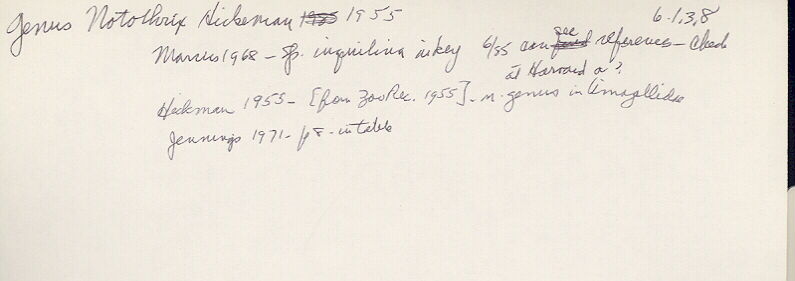 Genus Notothrix Hickman 1955 6.1,3,8
Marcus 1968 - Sp. inquilina in key 6/55 can see reference - Check
at Harvard or ?
Hickman 1955 - [from Zoo Rec. 1955]. n. genus in Umagillidae
Jennings 1971 - p 8 - in table